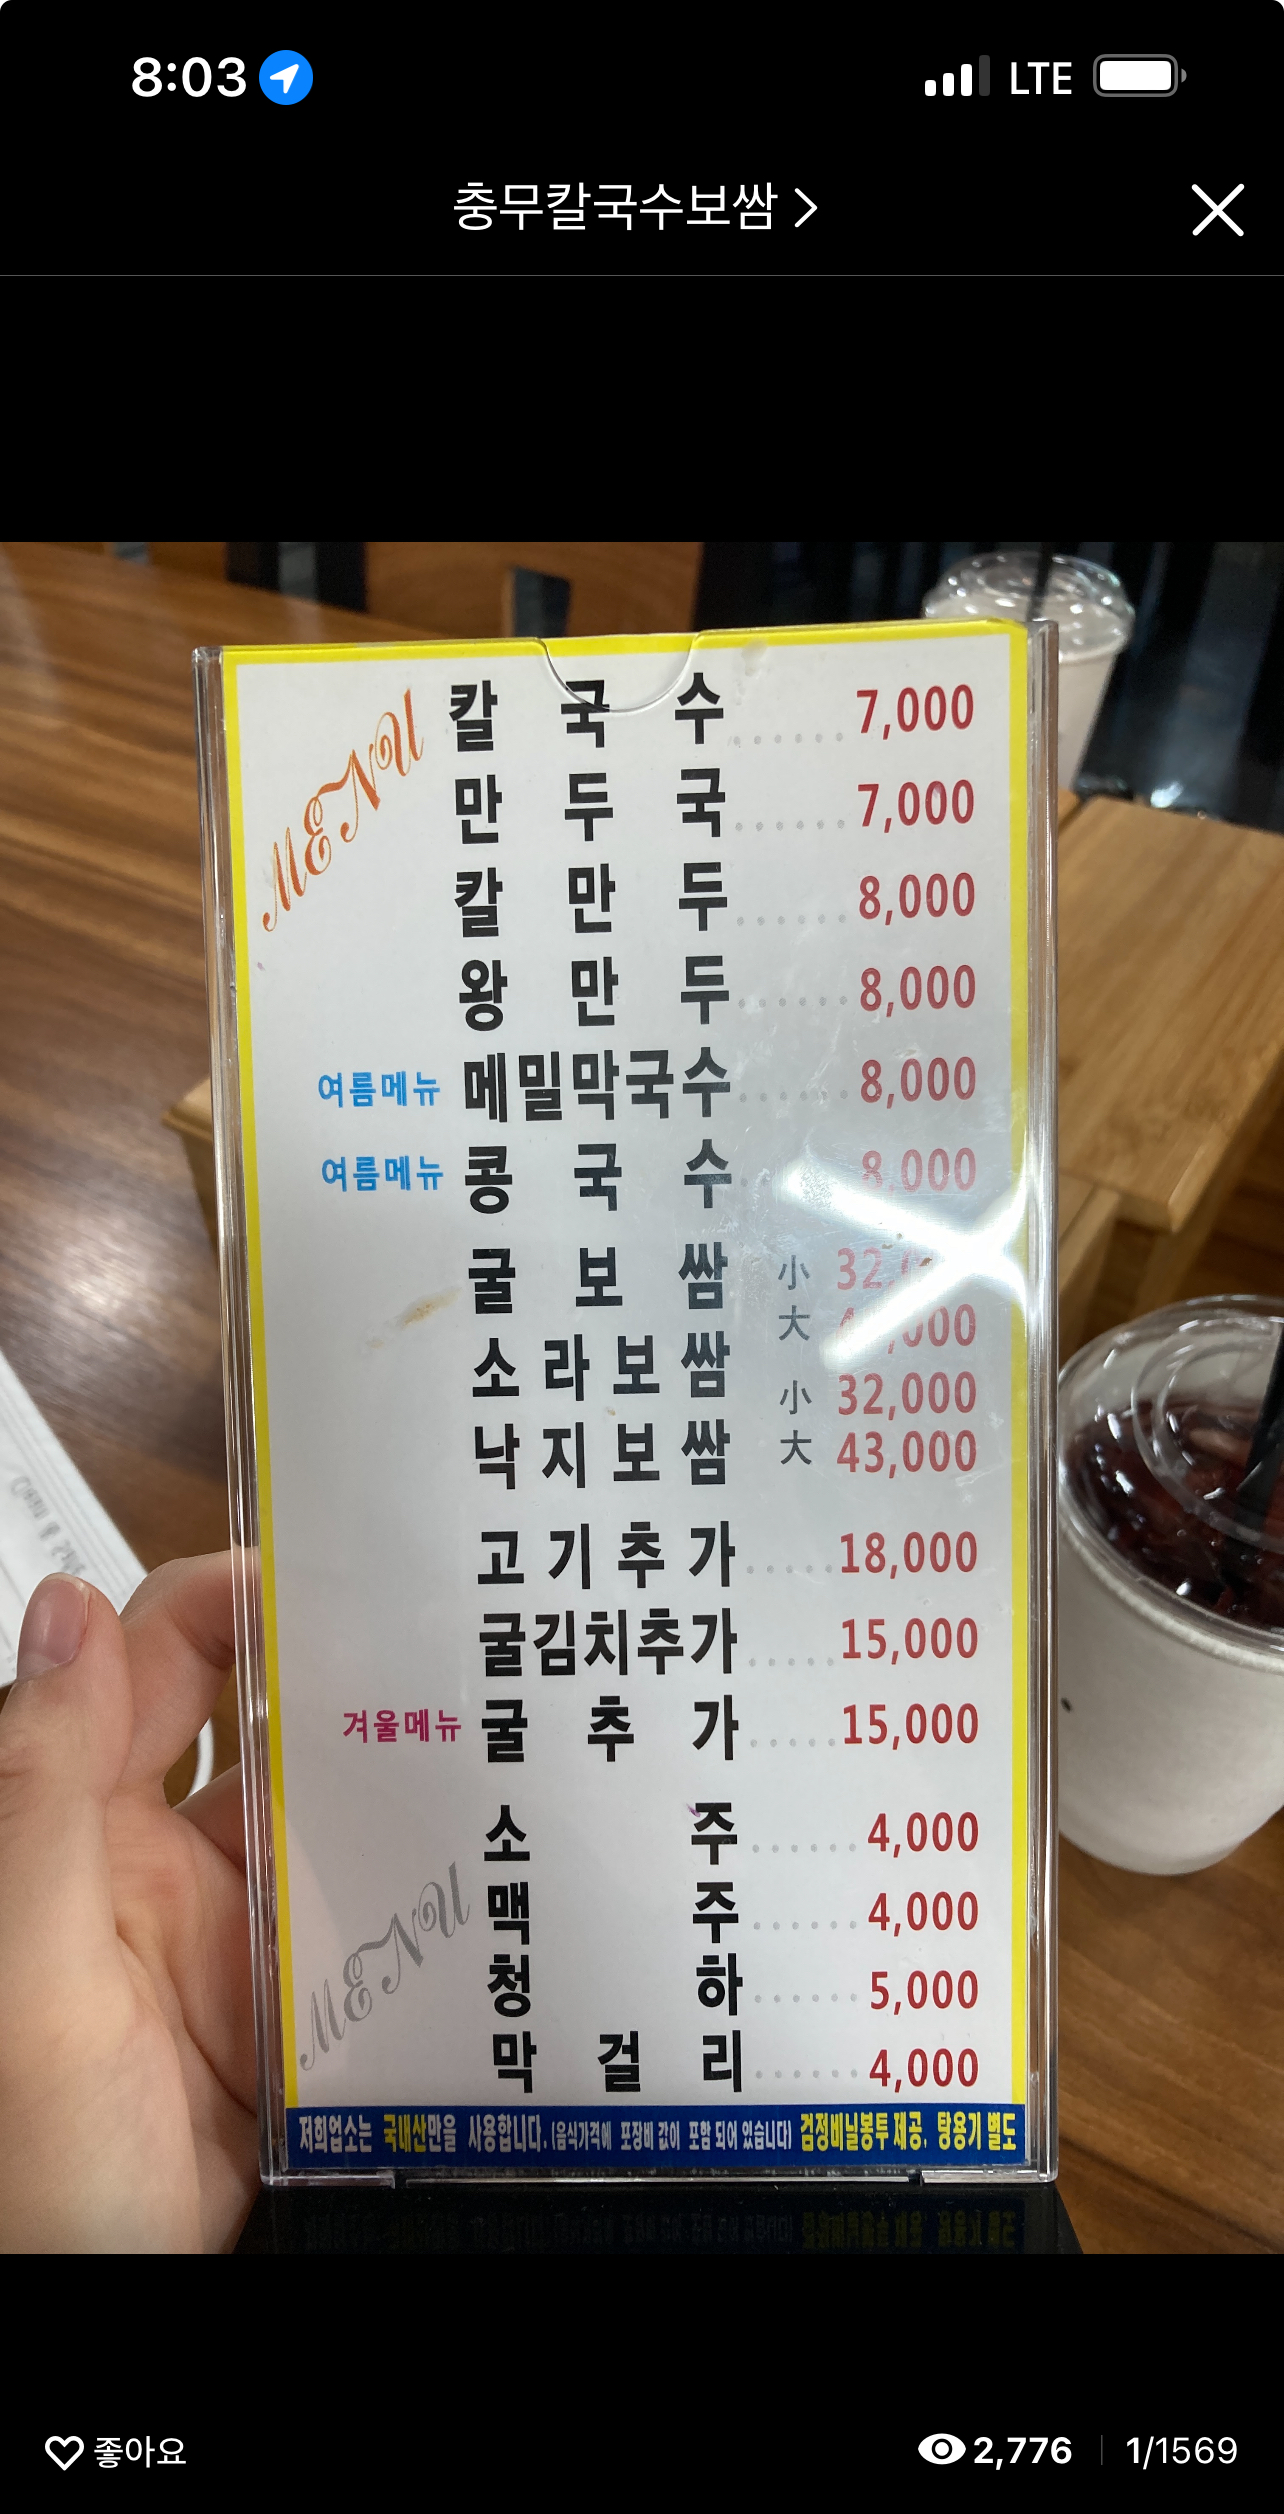 8:03
LTE
충무칼국수보쌈
MENU
칼국수 7,000
만두국 7,000
칼만두 8,000
왕만두 8,000
여름메뉴 메밀막국수 8,000
여름메뉴 콩국수 8,000
굴보쌈 小
大
소라보쌈 小 32,000
낙지보쌈 大 43,000
고기추가 18,000
굴김치추가 15,000
겨울메뉴 굴추가 15,000
소주 4,000
맥주 4,000
청하 5,000
막걸리 4,000
MENU
저희업소는 국내산만을 사용합니다. (음식가격에 포장비 값이 포함 되어 있습니다) 검정비닐봉투 제공. 탕용기 별도
좋아요
2,776
1/1569